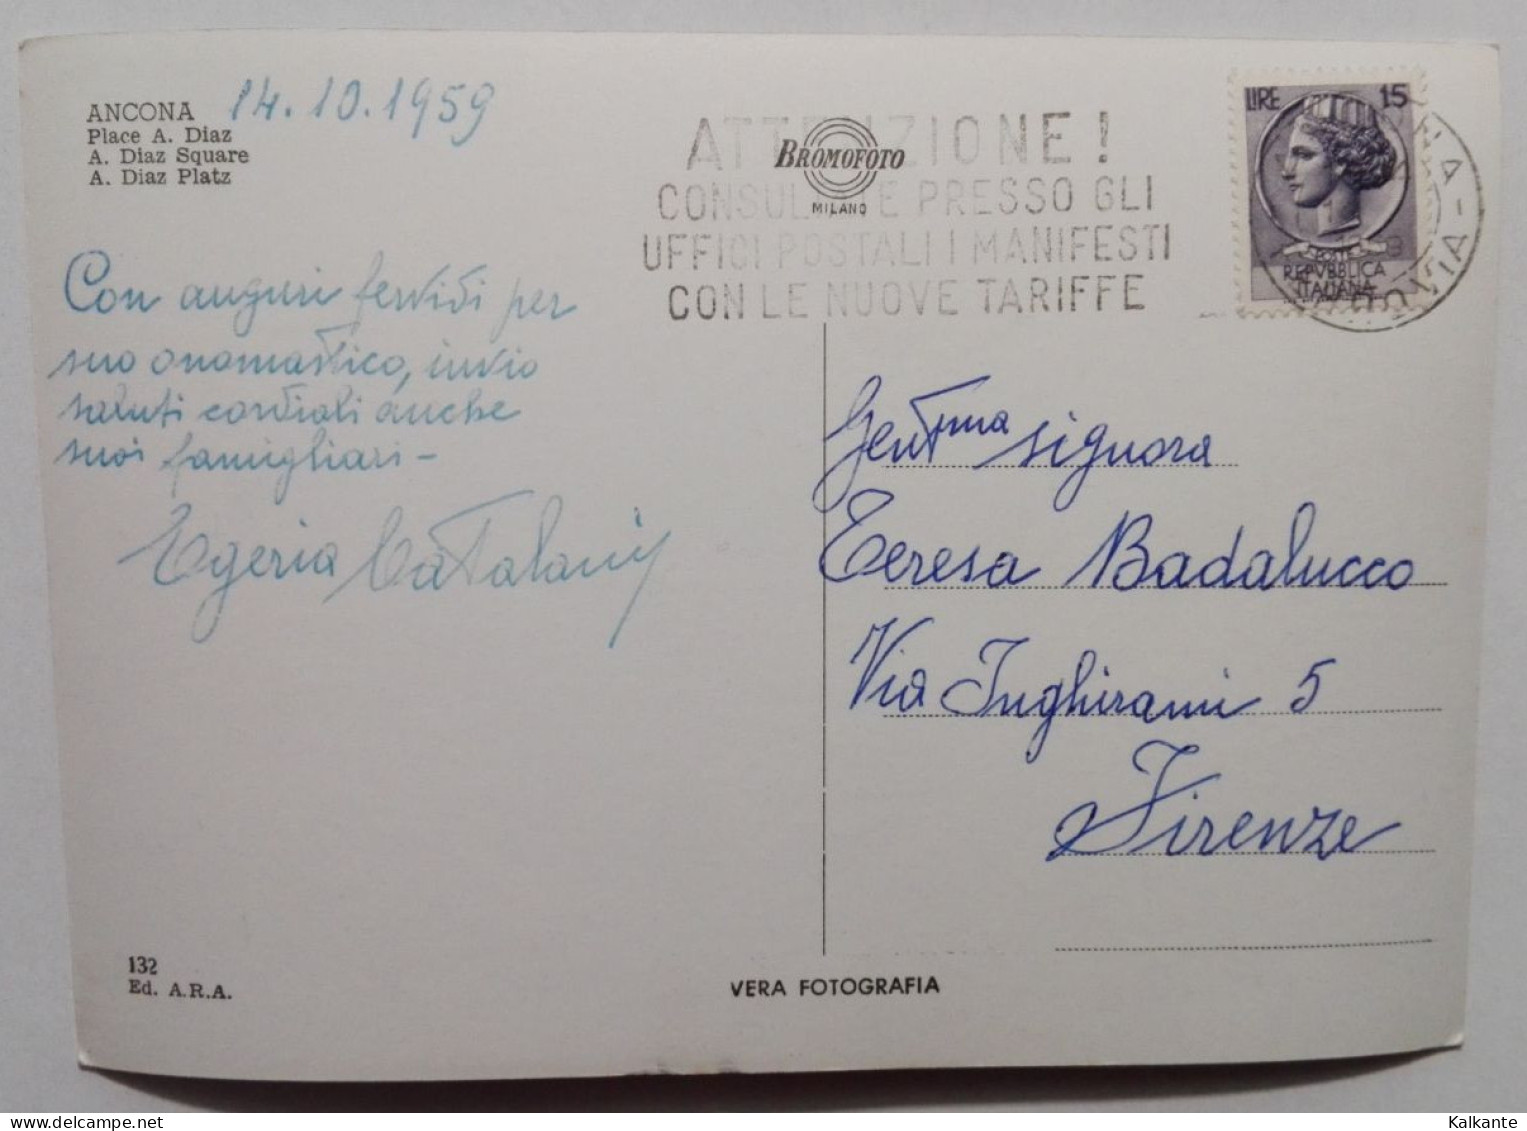 ANCONA
Place A. Diaz
A. Diaz Square
A. Diaz Platz
14.10.1959
Con auguri fervidi per
suo onomastico, invio
saluti cordiali anche
suoi famigliari -
Egeria Catalani
132
Ed. A.R.A.
BROMOFOTO
MILANO
VERA FOTOGRAFIA
ATTENZIONE!
CONSULTATE PRESSO GLI
UFFICI POSTALI I MANIFESTI
CON LE NUOVE TARIFFE
LIRE 15
POSTE
REPVBBLICA
ITALIANA
FERROVIA
Gent.ma signora
Teresa Badalucco
Via Inghirami 5
Firenze
Kalkante
delcampe.net